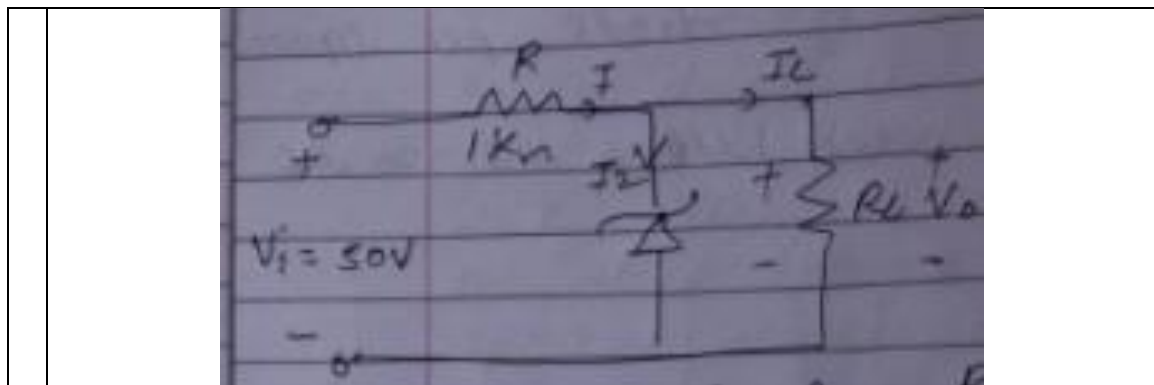 R I IL
1KΩ
+ IZ + RL + Vo
Vi = 50V
- - -